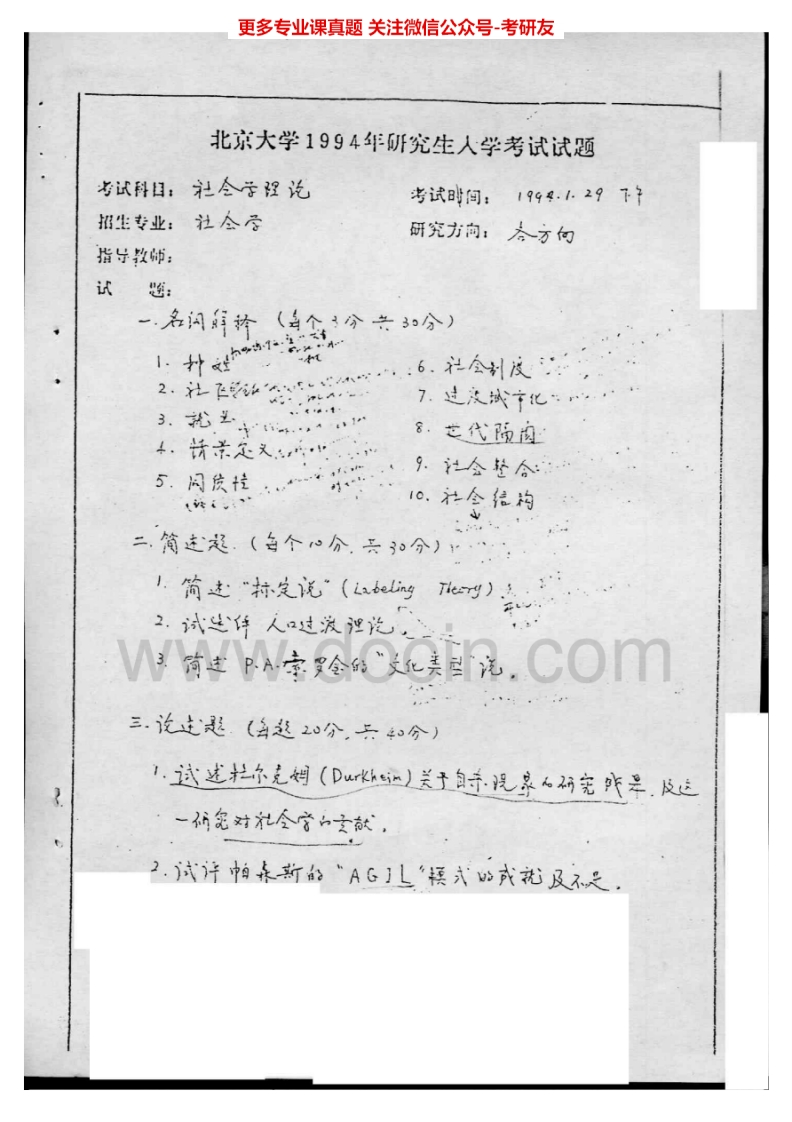 更多专业课真题 关注微信公众号-考研友
北京大学1994年研究生入学考试试题
考试科目: 社会学理论
考试时间: 1994.1.29 下午
招生专业: 社会学
研究方向: 各方向
指导教师:
试 题:
一.名词解释 (每个3分 共30分)
1. 种族
2. 社区
3. 就业
4. 情景定义
5. 同质性
6. 社会制度
7. 过度城市化
8. 世代隔阂
9. 社会整合
10. 社会结构
二.简述题.(每个10分.共30分)
1. 简述"标定说"(Labeling Theory).
2. 试述 人口过渡理论.
3. 简述 P.A.索罗金的"文化类型"说.
www.docin.com
三.论述题.(每题20分.共40分)
1. 试述杜尔克姆(Durkheim)关于自杀现象的研究成果.及这
一研究对社会学的贡献.
2. 试评帕森斯的"AGIL"模式的成就及不足.